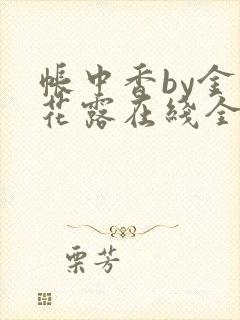 帐中香by金
花露在线全
栗芳